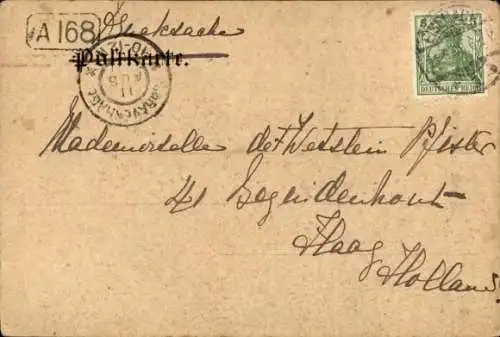 A 168
Drucksache
Postkarte.
'S-GRAVENHAGE
10-12
11
AUG
5
DEUTSCHES REICH
Mademoiselle de Wetstein Pfister
41 Bezuidenhout
Haag
Holland